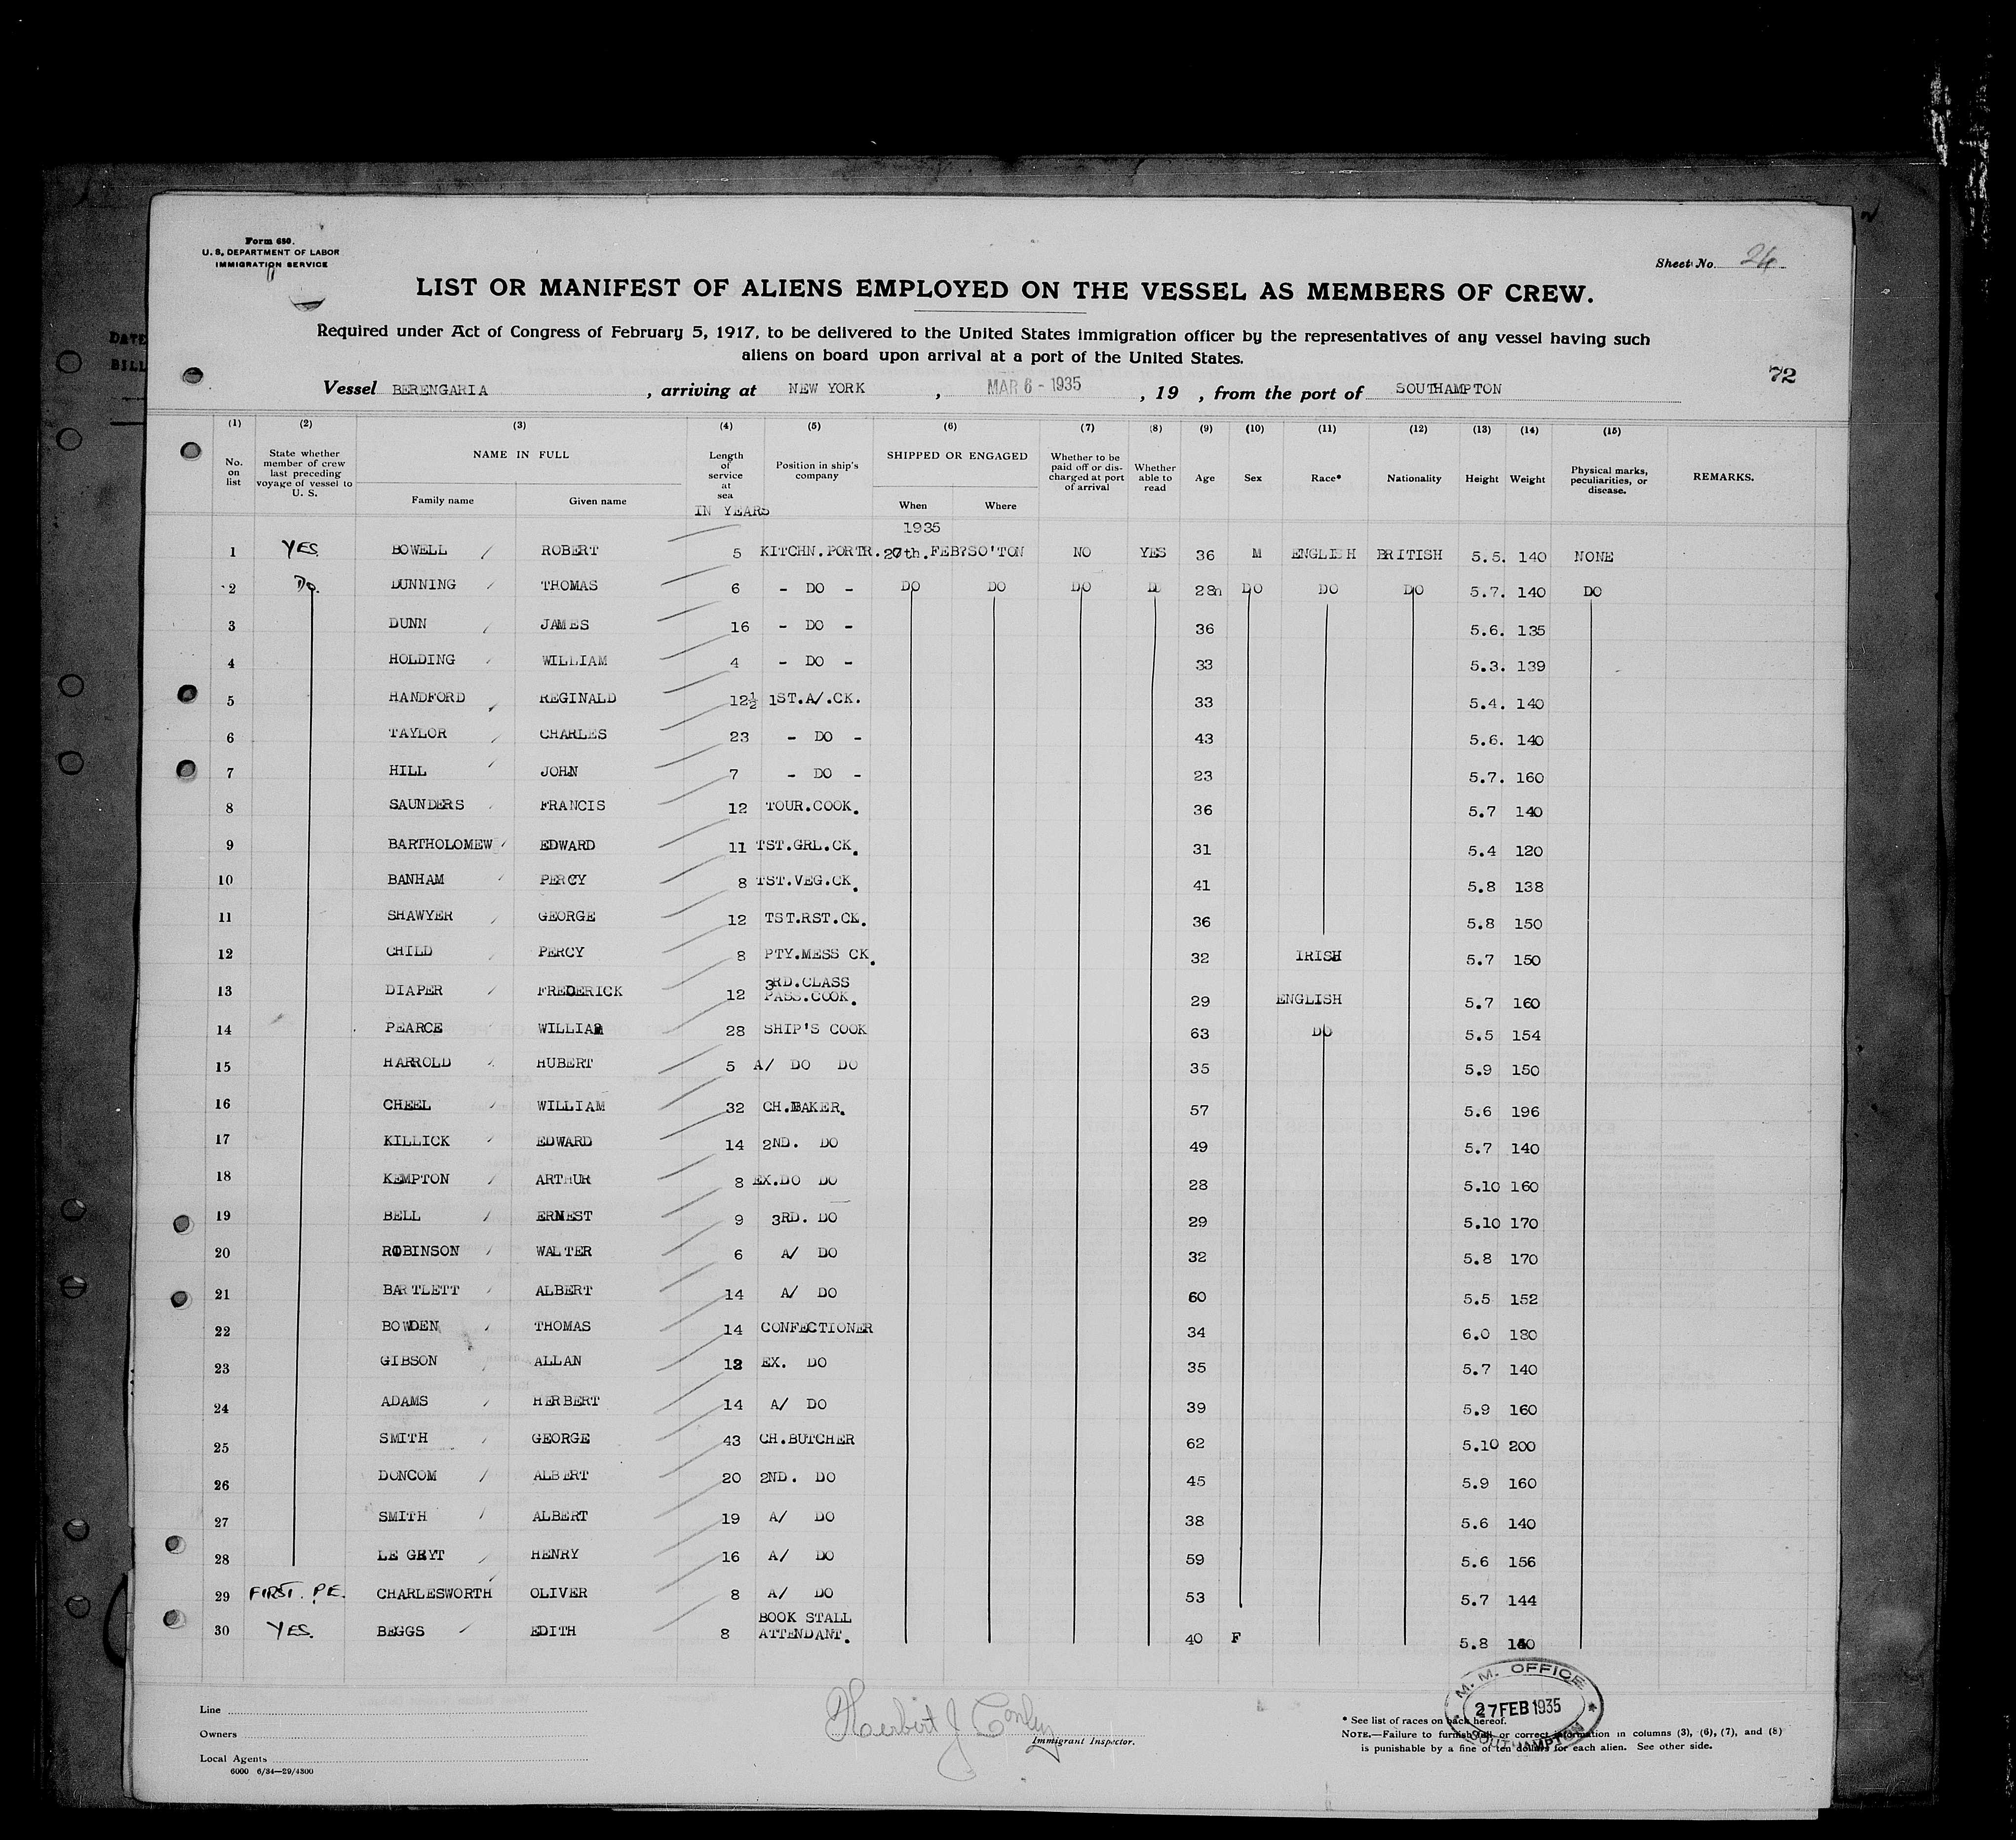 DATE
BILL
Form 680.
U. S. DEPARTMENT OF LABOR
IMMIGRATION SERVICE
Sheet No. 26
LIST OR MANIFEST OF ALIENS EMPLOYED ON THE VESSEL AS MEMBERS OF CREW.
Required under Act of Congress of February 5, 1917, to be delivered to the United States immigration officer by the representatives of any vessel having such
aliens on board upon arrival at a port of the United States.
72
Vessel BERENGARIA , arriving at NEW YORK , MAR 6 - 1935 , 19 , from the port of SOUTHAMPTON
(1) (2) (3) (4) (5) (6) (7) (8) (9) (10) (11) (12) (13) (14) (15)
No. on list State whether member of crew last preceding voyage of vessel to U. S. NAME IN FULL Family name Given name Length of service at sea IN YEARS Position in ship's company SHIPPED OR ENGAGED When Where Whether to be paid off or discharged at port of arrival Whether able to read Age Sex Race* Nationality Height Weight Physical marks, peculiarities, or disease. REMARKS.
1935
1 YES. BOWELL ROBERT 5 KITCHN.PORTR. 27th.FEB SO'TON NO YES 36 M ENGLISH BRITISH 5.5. 140 NONE
2 Do. DUNNING THOMAS 6 - DO - DO DO DO D 28 DO DO DO 5.7. 140 DO
3 DUNN JAMES 16 - DO - 36 5.6. 135
4 HOLDING WILLIAM 4 - DO - 33 5.3. 139
5 HANDFORD REGINALD 12½ 1ST.A/.CK. 33 5.4. 140
6 TAYLOR CHARLES 23 - DO - 43 5.6. 140
7 HILL JOHN 7 - DO - 23 5.7. 160
8 SAUNDERS FRANCIS 12 TOUR.COOK. 36 5.7 140
9 BARTHOLOMEW EDWARD 11 TST.GRL.CK. 31 5.4 120
10 BANHAM PERCY 8 TST.VEG.CK. 41 5.8 138
11 SHAWYER GEORGE 12 TST.RST.CK. 36 5.8 150
12 CHILD PERCY 8 PTY.MESS CK. 32 IRISH 5.7 150
13 DIAPER FREDERICK 12 3RD.CLASS PASS.COOK. 29 ENGLISH 5.7 160
14 PEARCE WILLIAM 28 SHIP'S COOK 63 DO 5.5 154
15 HARROLD HUBERT 5 A/ DO DO 35 5.9 150
16 CHEEL WILLIAM 32 CH.BAKER. 57 5.6 196
17 KILLICK EDWARD 14 2ND. DO 49 5.7 140
18 KEMPTON ARTHUR 8 EX.DO DO 28 5.10 160
19 BELL ERNEST 9 3RD. DO 29 5.10 170
20 ROBINSON WALTER 6 A/ DO 32 5.8 170
21 BARTLETT ALBERT 14 A/ DO 60 5.5 152
22 BOWDEN THOMAS 14 CONFECTIONER 34 6.0 180
23 GIBSON ALLAN EX. DO 35 5.7 140
24 ADAMS HERBERT 14 A/ DO 39 5.9 160
25 SMITH GEORGE 43 CH.BUTCHER 62 5.10 200
26 DONCOM ALBERT 20 2ND. DO 45 5.9 160
27 SMITH ALBERT 19 A/ DO 38 5.6 140
28 LE GRYT HENRY 16 A/ DO 59 5.6 156
29 FIRST. P.E. CHARLESWORTH OLIVER 8 A/ DO 53 5.7 144
30 YES. BEGGS EDITH 8 BOOK STALL ATTENDANT. 40 F 5.8
Line
Owners
Local Agents
6000 6/34—29/4300
Herbert J Conley
Immigrant Inspector.
M. M. OFFICE
27 FEB 1935
SOUTHAMPTON
* See list of races on back hereof.
NOTE.—Failure to furnish full or correct information in columns (3), (6), (7), and (8)
is punishable by a fine of ten dollars for each alien. See other side.